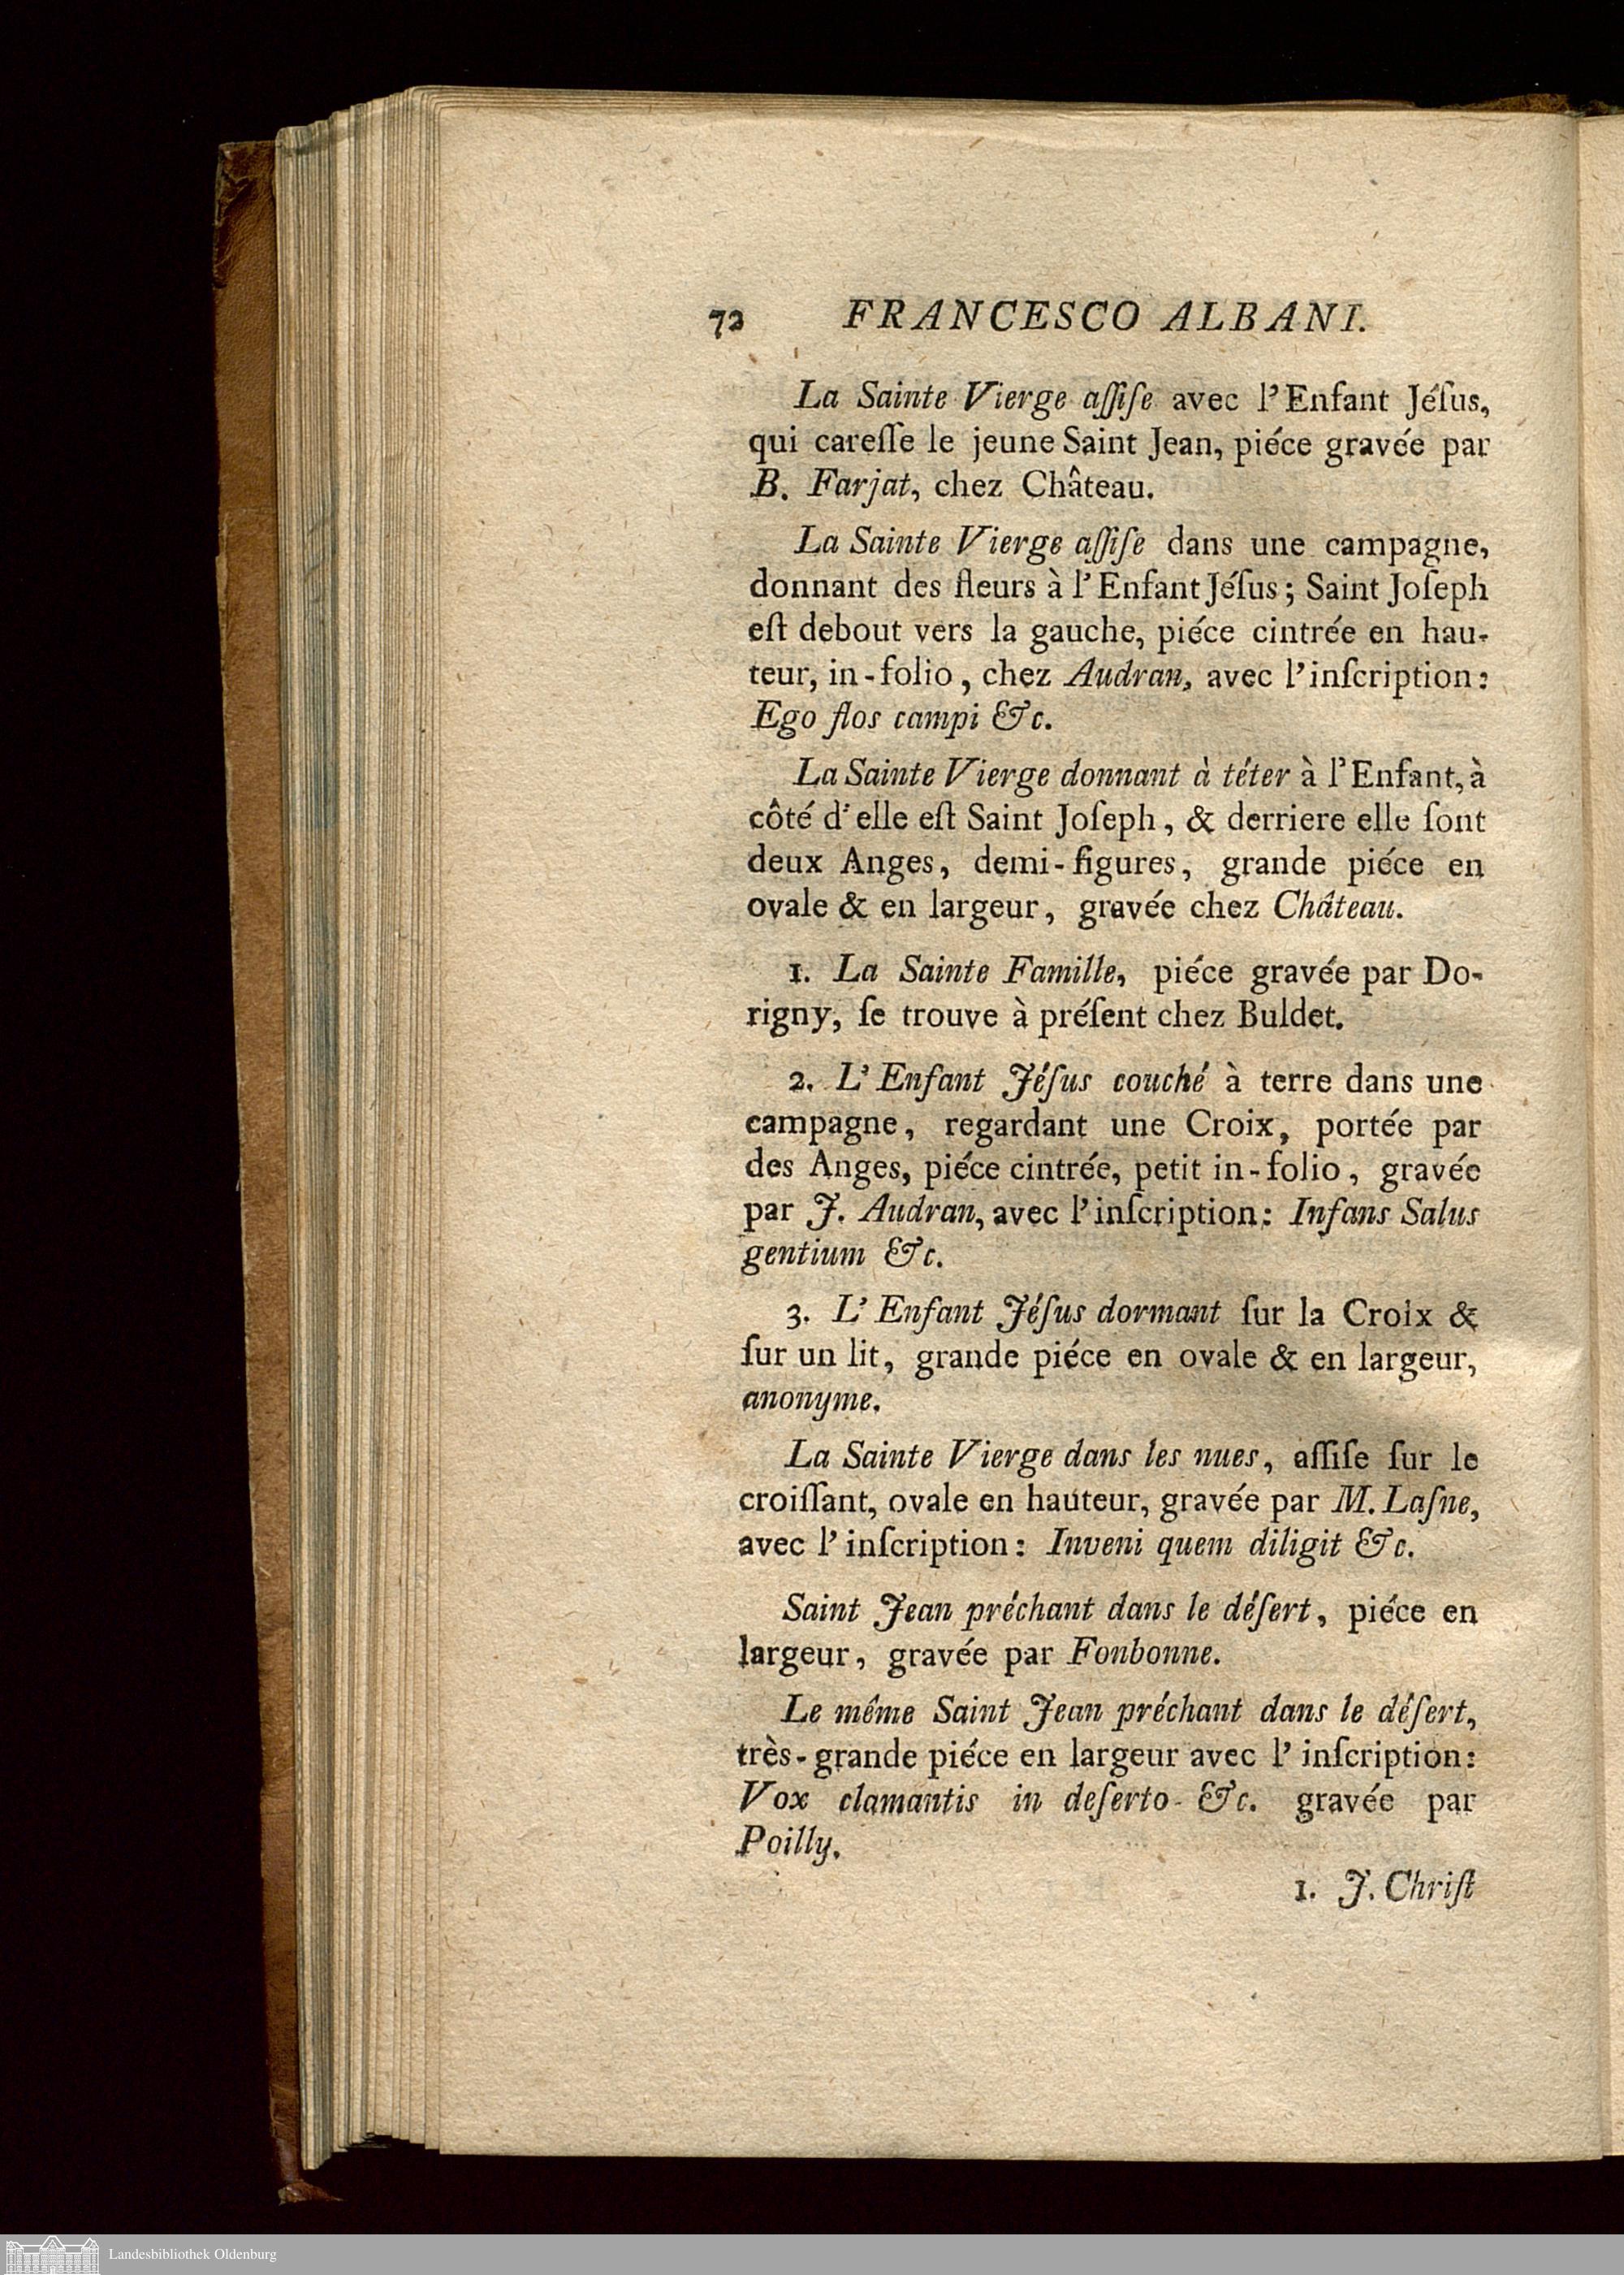 72 FRANCESCO ALBANI.
La Sainte Vierge aſſiſe avec l'Enfant Jéſus,
qui careſſe le jeune Saint Jean, piéce gravée par
B. Farjat, chez Château.
La Sainte Vierge aſſiſe dans une campagne,
donnant des fleurs à l'Enfant Jéſus; Saint Joſeph
eſt debout vers la gauche, piéce cintrée en hau-
teur, in-folio, chez Audran, avec l'inſcription:
Ego flos campi &c.
La Sainte Vierge donnant à téter à l'Enfant, à
côté d'elle eſt Saint Joſeph, & derriere elle ſont
deux Anges, demi-figures, grande piéce en
ovale & en largeur, gravée chez Château.
1. La Sainte Famille, piéce gravée par Do-
rigny, ſe trouve à préſent chez Buldet.
2. L'Enfant Jéſus couché à terre dans une
campagne, regardant une Croix, portée par
des Anges, piéce cintrée, petit in-folio, gravée
par J. Audran, avec l'inſcription: Infans Salus
gentium &c.
3. L'Enfant Jéſus dormant ſur la Croix &
ſur un lit, grande piéce en ovale & en largeur,
anonyme.
La Sainte Vierge dans les nues, aſſiſe ſur le
croiſſant, ovale en hauteur, gravée par M. Laſne,
avec l'inſcription: Inveni quem diligit &c.
Saint Jean préchant dans le déſert, piéce en
largeur, gravée par Fonbonne.
Le même Saint Jean préchant dans le déſert,
très-grande piéce en largeur avec l'inſcription:
Vox clamantis in deſerto &c. gravée par
Poilly.
1. J. Chriſt
Landesbibliothek Oldenburg